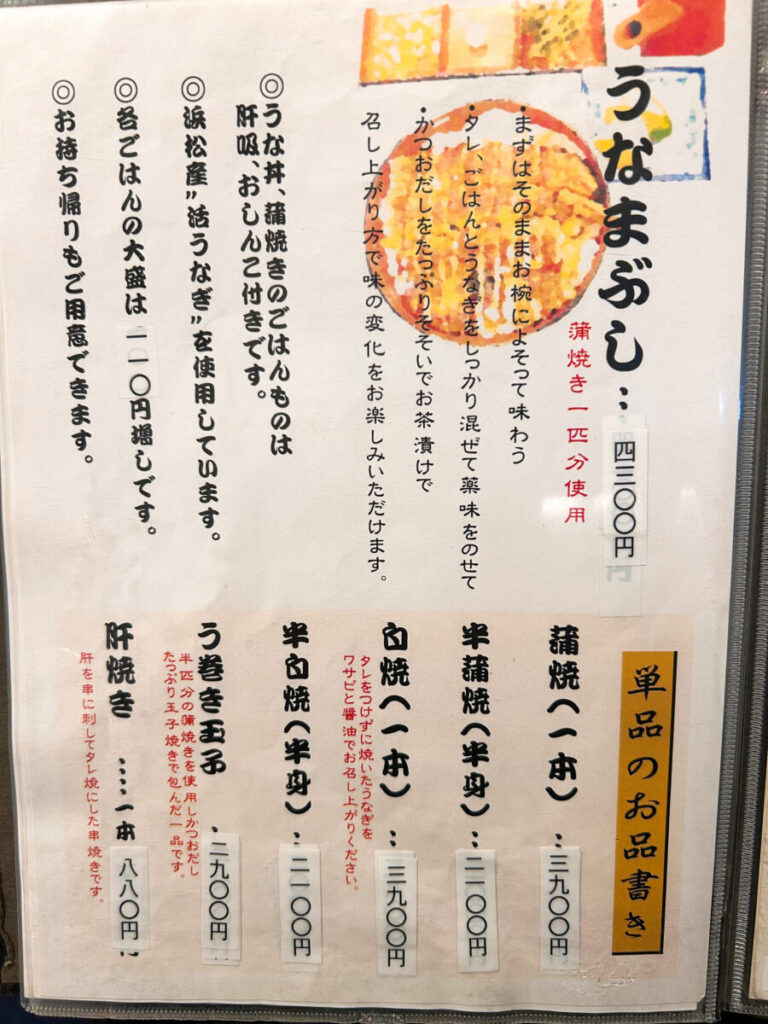 うなまぶし…四三〇〇円
蒲焼き一匹分使用
・まずはそのままお椀によそって味わう
・タレ、ごはんとうなぎをしっかり混ぜて薬味をのせて
・かつおだしをたっぷりそそいでお茶漬けで
召し上がり方で味の変化をお楽しみいただけます。
◎うな丼、蒲焼きのごはんものは
肝吸、おしんこ付きです。
◎浜松産”活うなぎ”を使用しています。
◎各ごはんの大盛は一一〇円増しです。
◎お持ち帰りもご用意できます。
単品のお品書き
蒲焼(一本)…三九〇〇円
半蒲焼(半身)…二一〇〇円
白焼(一本)…三九〇〇円
タレをつけずに焼いたうなぎを
ワサビと醤油でお召し上がりください。
半白焼(半身)…二一〇〇円
う巻き玉子…二九〇〇円
半匹分の蒲焼きを使用しかつおだし
たっぷり玉子焼きで包んだ一品です。
肝焼き……一本八八〇円
肝を串に刺してタレ焼にした串焼きです。